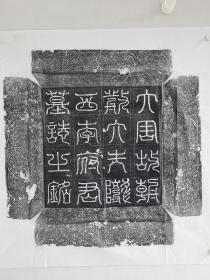 大周故朝
散大夫隴
西李府君
墓誌之銘